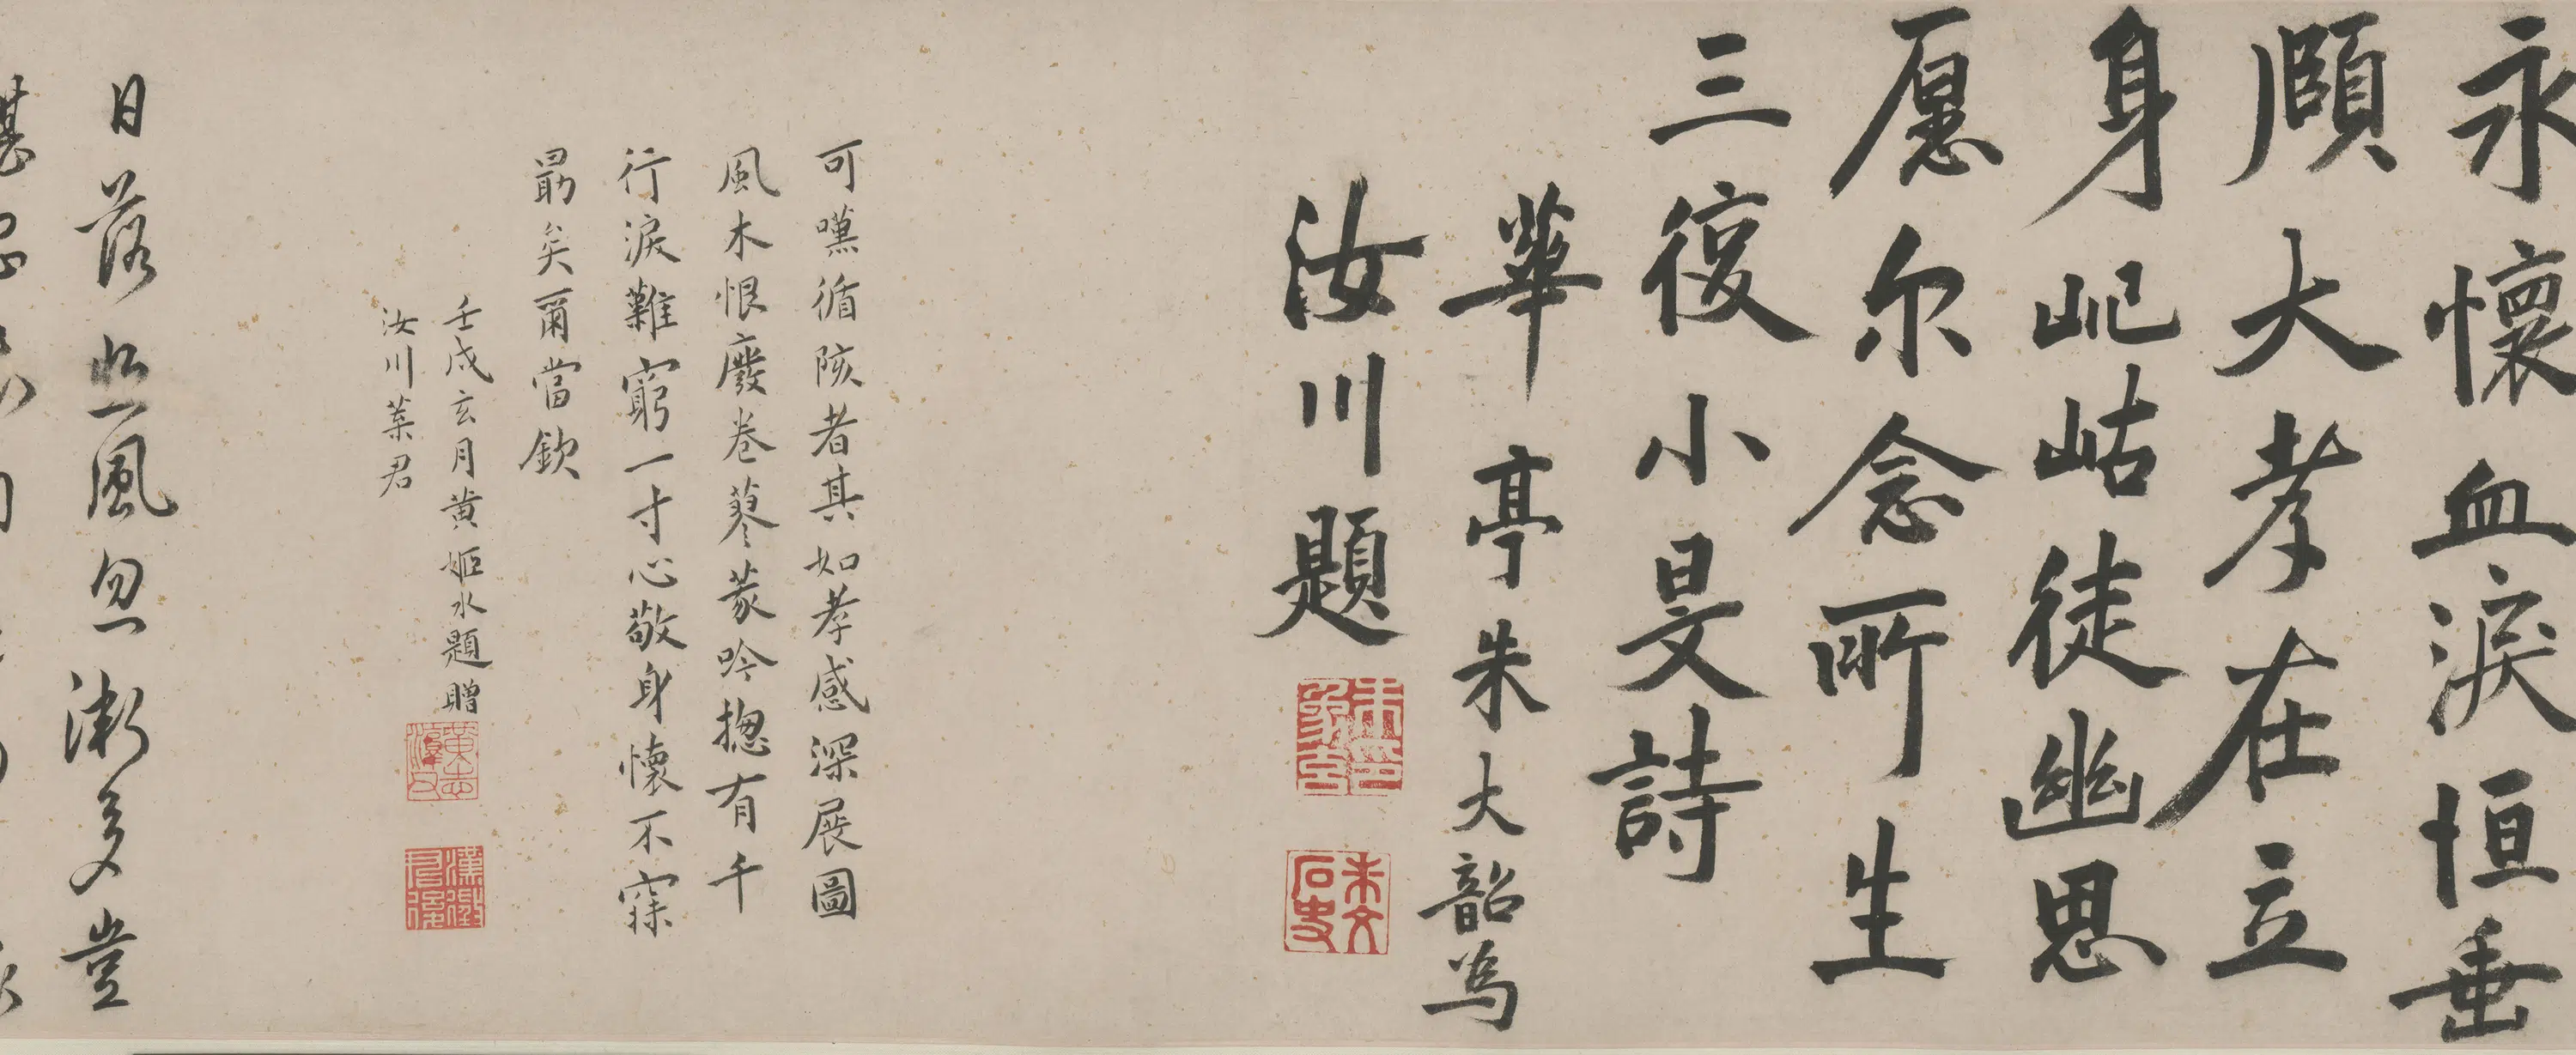 永懷血淚恒垂
頤大孝在立
身屺岵徒幽思
愿尔念所生
三復小旻詩
華亭朱大韶為
汝川題
可嘿循陔者其如孝感深展圖
風木恨廢卷蓼莪吟揔有千
行淚難窮一寸心敬身懷不寐
勗矣爾當欽
壬戌玄月黃姬水題贈
汝川葉君
日落悲風忽漸多豈